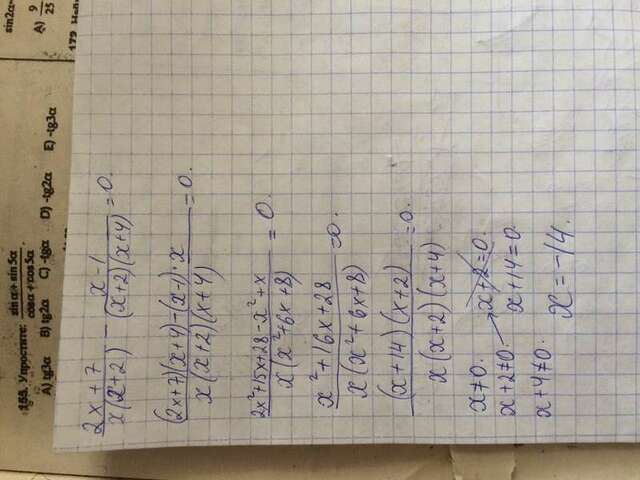 155. Упростите: (sinα + sin5α)/(cosα + cos5α).
A) tg3α B) tg2α C) -tgα D) -tg2α E) -tg3α
sin2α=
A) 9/25
(2x + 7)/(x(x+2)) − (x−1)/((x+2)(x+4)) = 0.
((2x+7)(x+4)−(x−1)·x)/(x(x+2)(x+4)) = 0.
(2x²+15x+28−x²+x)/(x(x²+6x+8)) = 0.
(x²+16x+28)/(x(x²+6x+8)) = 0.
((x+14)(x+2))/(x(x+2)(x+4)) = 0.
x≠0. x+2=0.
x+2≠0. x+14=0.
x+4≠0. x=-14.